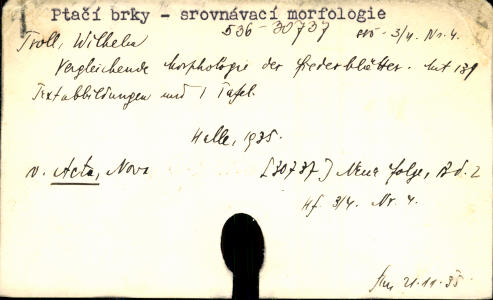 Ptačí brky - srovnávací morfologie
536-30737
Troll, Wilhelm 3/4. Nr. 4.
Vergleichende Morphologie der Fiederblätter. Mit 139
Textabbildungen und 1 Tafel.
Halle, 1935.
v. Acta, Nova [30737] Neue Folge, Bd. 2
Hf 3/4. Nr. 4.
21.11.35